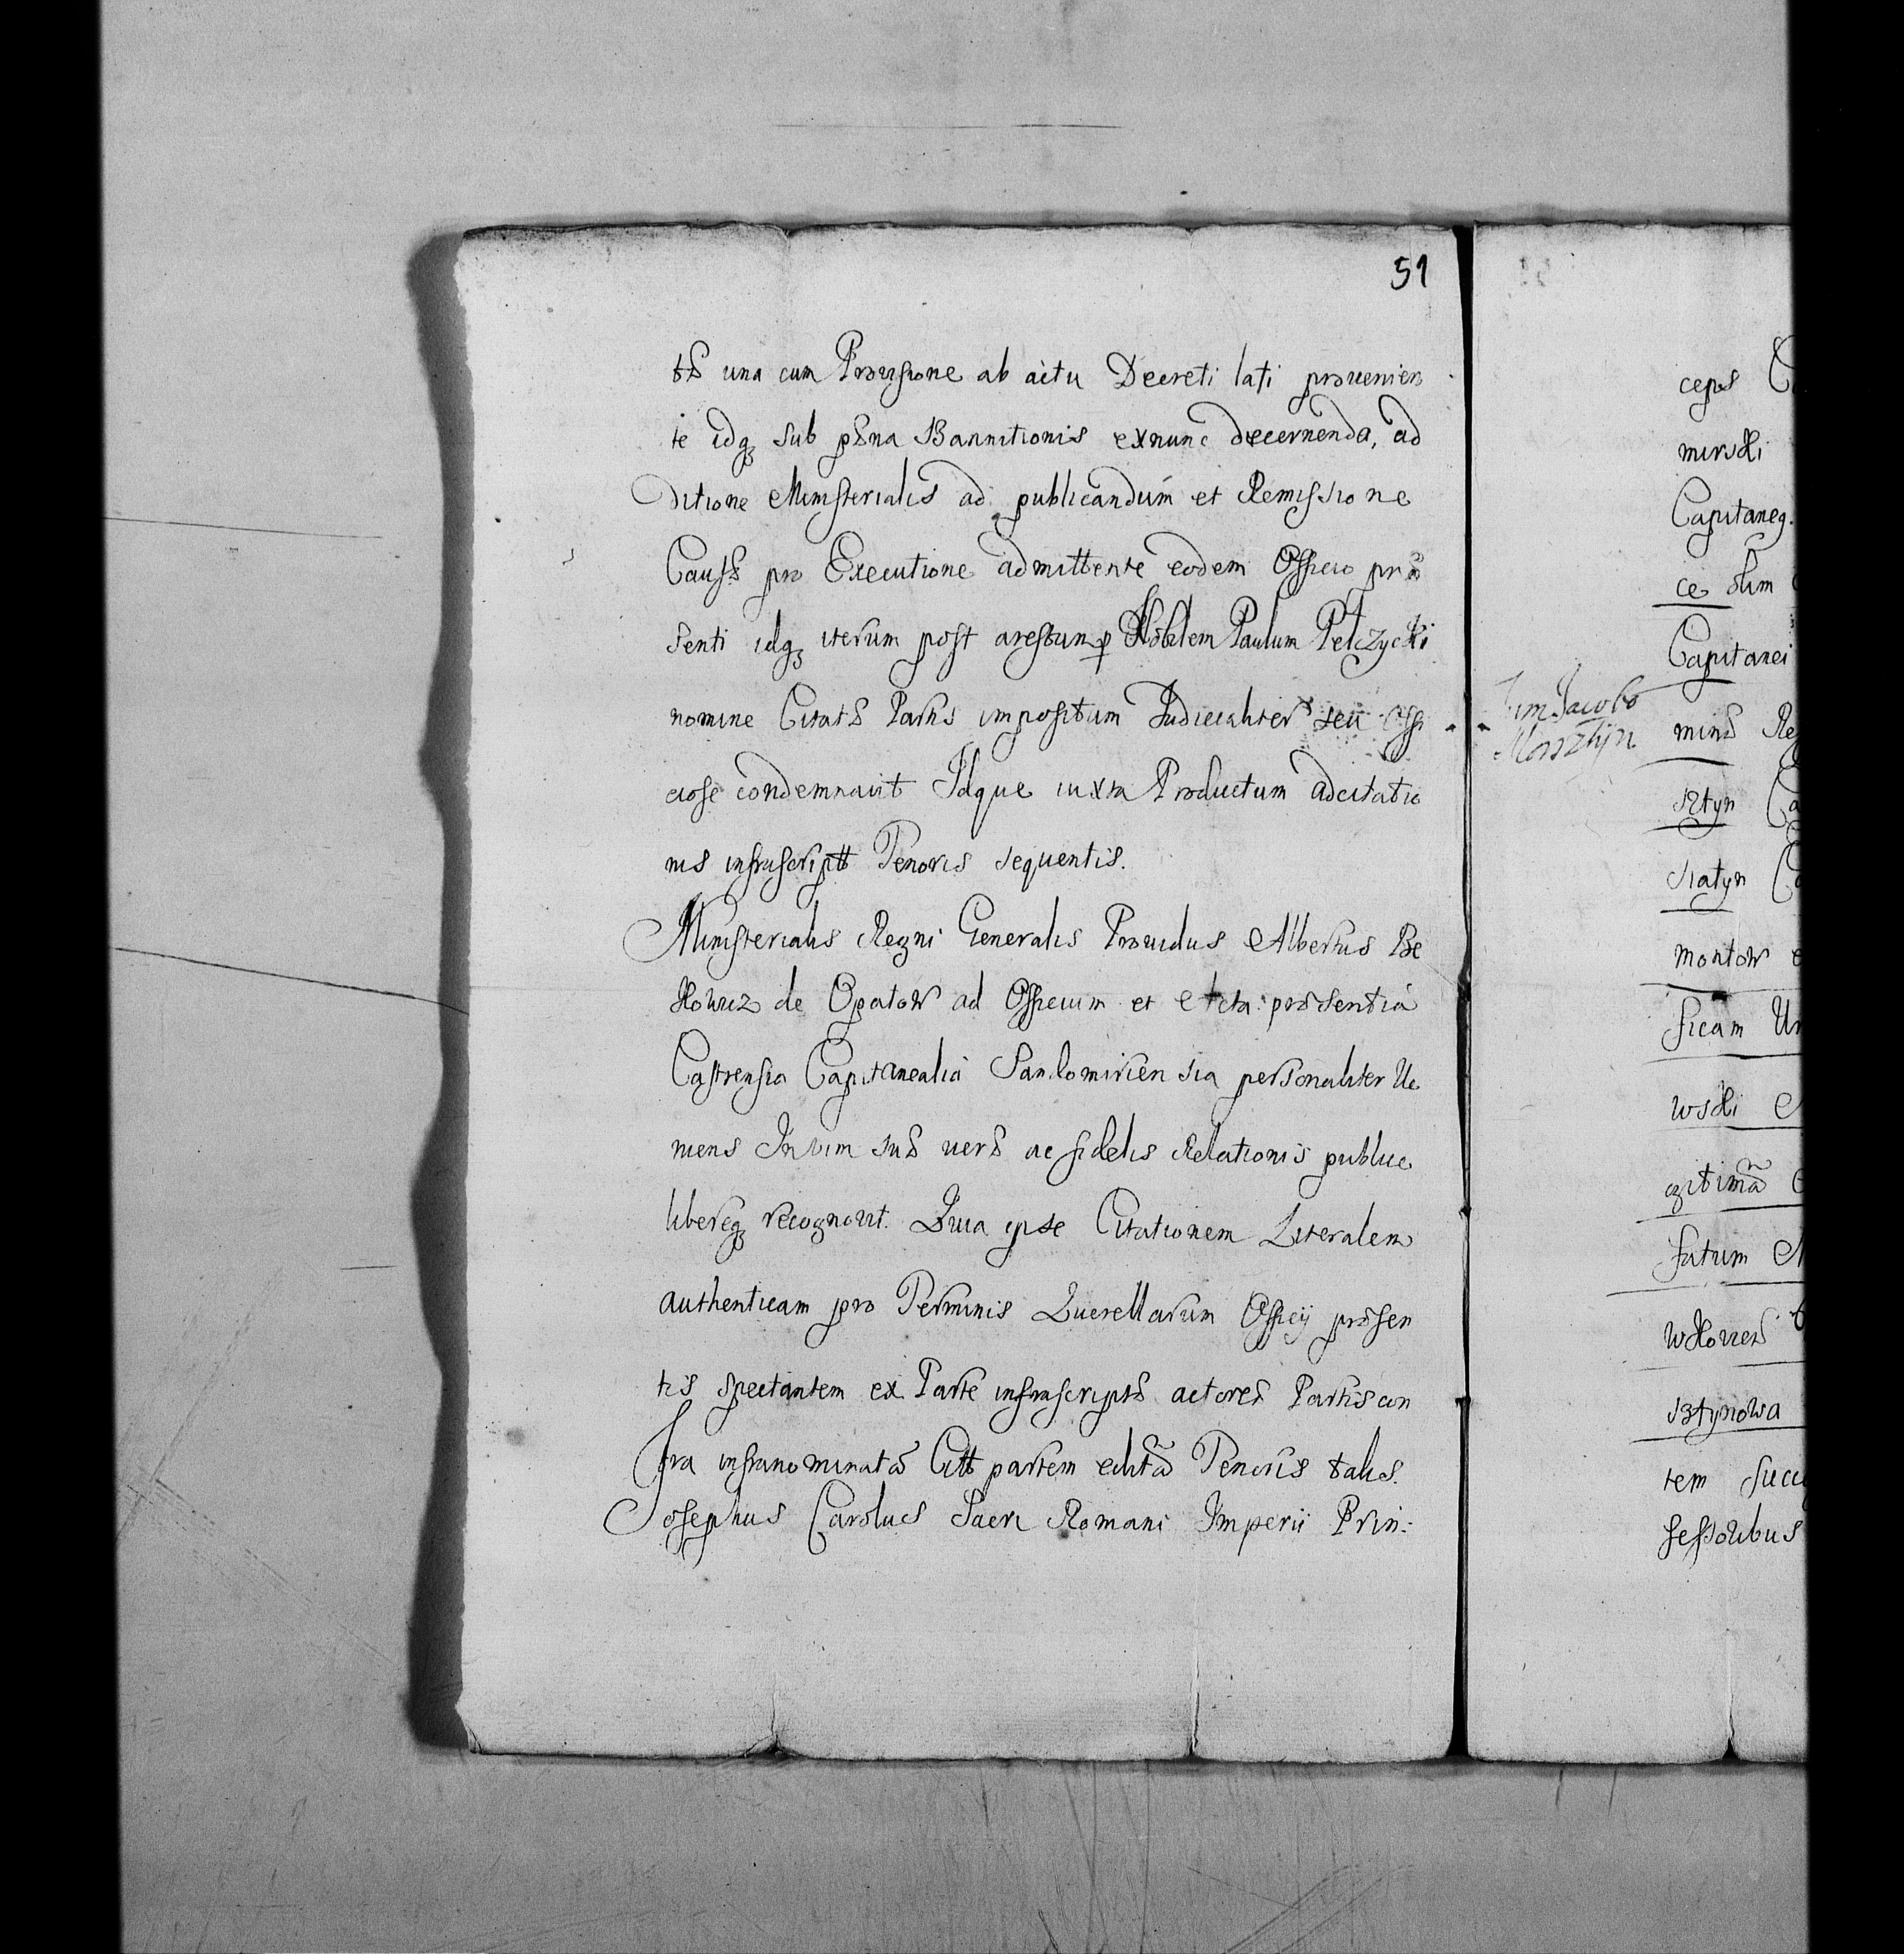 51
tæ una cum Provisione ab actu Decreti lati provenien
te idq3 sub pæna Bannitionis exnunc decernenda, ad
ditione Ministerialis ad publicandum et Remissione
Causæ pro Executione admittente eodem Officio præ
senti idq3 iterum post arestum p Nobilem Paulum Pełczycki
nomine Citatæ Partis impositum Judicialiter seu Offi
ciose condemnavit Idque iuxta Productum adcitatio
nis infrascriptt Tenoris sequentis.
Ministerialis Regni Generalis Providus Albertus Be
kowicz de Opatow ad Officium et Acta præsentia
Castrensia Capitanealia Sandomiriensia personaliter Ve
niens In vim suæ veræ ac fidelis Relationis publice
libereq3 recognovit. Quia ipse Citationem Literalem
authenticam pro Terminis Querellarum Officij præsen
tis spectantem ex Parte infrascriptæ actoreæ Partis con
tra infranominatã Citt partem editã Tenoris talis.
Josephus Carolus Sacri Romani Imperii Prin:
ceps
mirski
Capitaneg.
ce olim
Capitanei
Jacobo
Morsztyn
minæ Re
sztyn Ca
siatyn
montow
ficam Un
wski
gitimã
fatum
wkoven
sztynowa
tem Succ
sessoribus